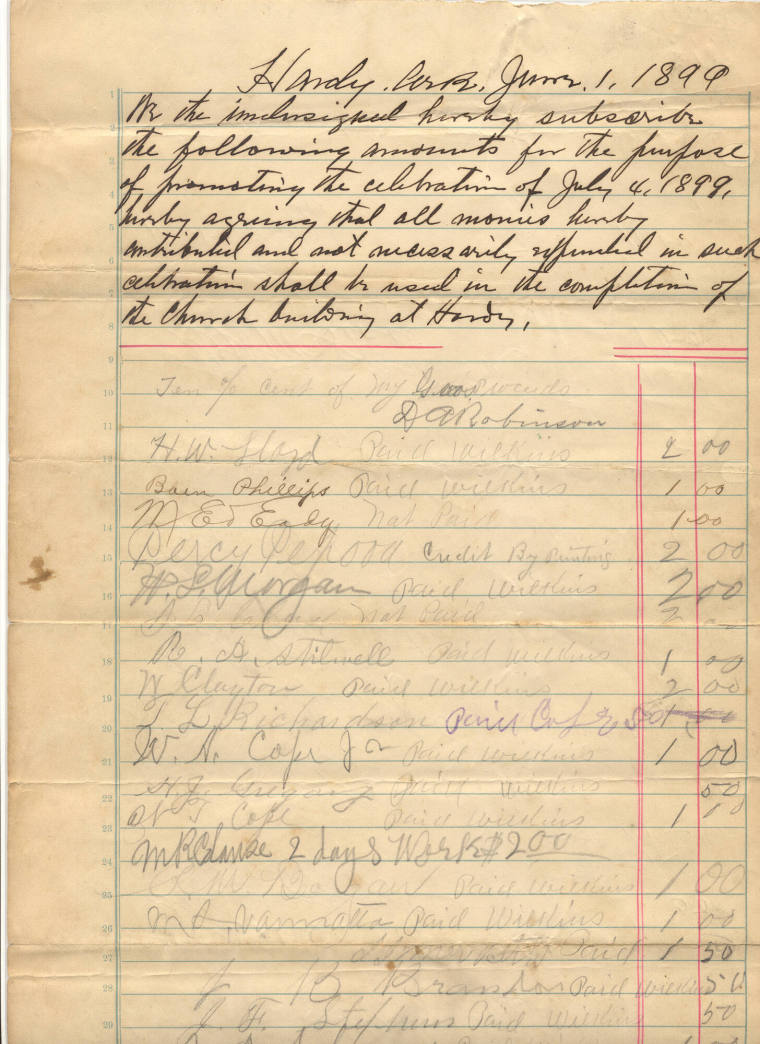 Hardy. Ark. June. 1. 1899
We the undersigned hereby subscribe
the following amounts for the purpose
of promoting the celebration of July 4, 1899,
hereby agreeing that all monies hereby
contributed and not necessarily expended in such
celebration shall be used in the completion of
the Church building at Hardy.
Ten % cent of My Gross Proceeds
D A Robinson
H. W. Lloyd Paid Wilkins 2 00
Phillips Paid Wilkins 1 00
Eady Not Paid 1.00
Percy Credit By Printing 2 00
H. L. Morgan Paid Wilkins 2 00
Not Paid 2
R. A. Stilwell Paid Wilkins 1 00
W Clayton Paid Wilkins 2 00
L L Richardson Paid
W. A. Cope Jr Paid Wilkins 1 00
Gregory Paid Wilkins 50
Cope Paid Wilkins 1
2 days Work $2 00
Paid Wilkins 1 00
Paid Wilkins 1 00
Paid 1 50
J B Paid Wilkins 50
J. F. Stephens Paid Wilkins 50